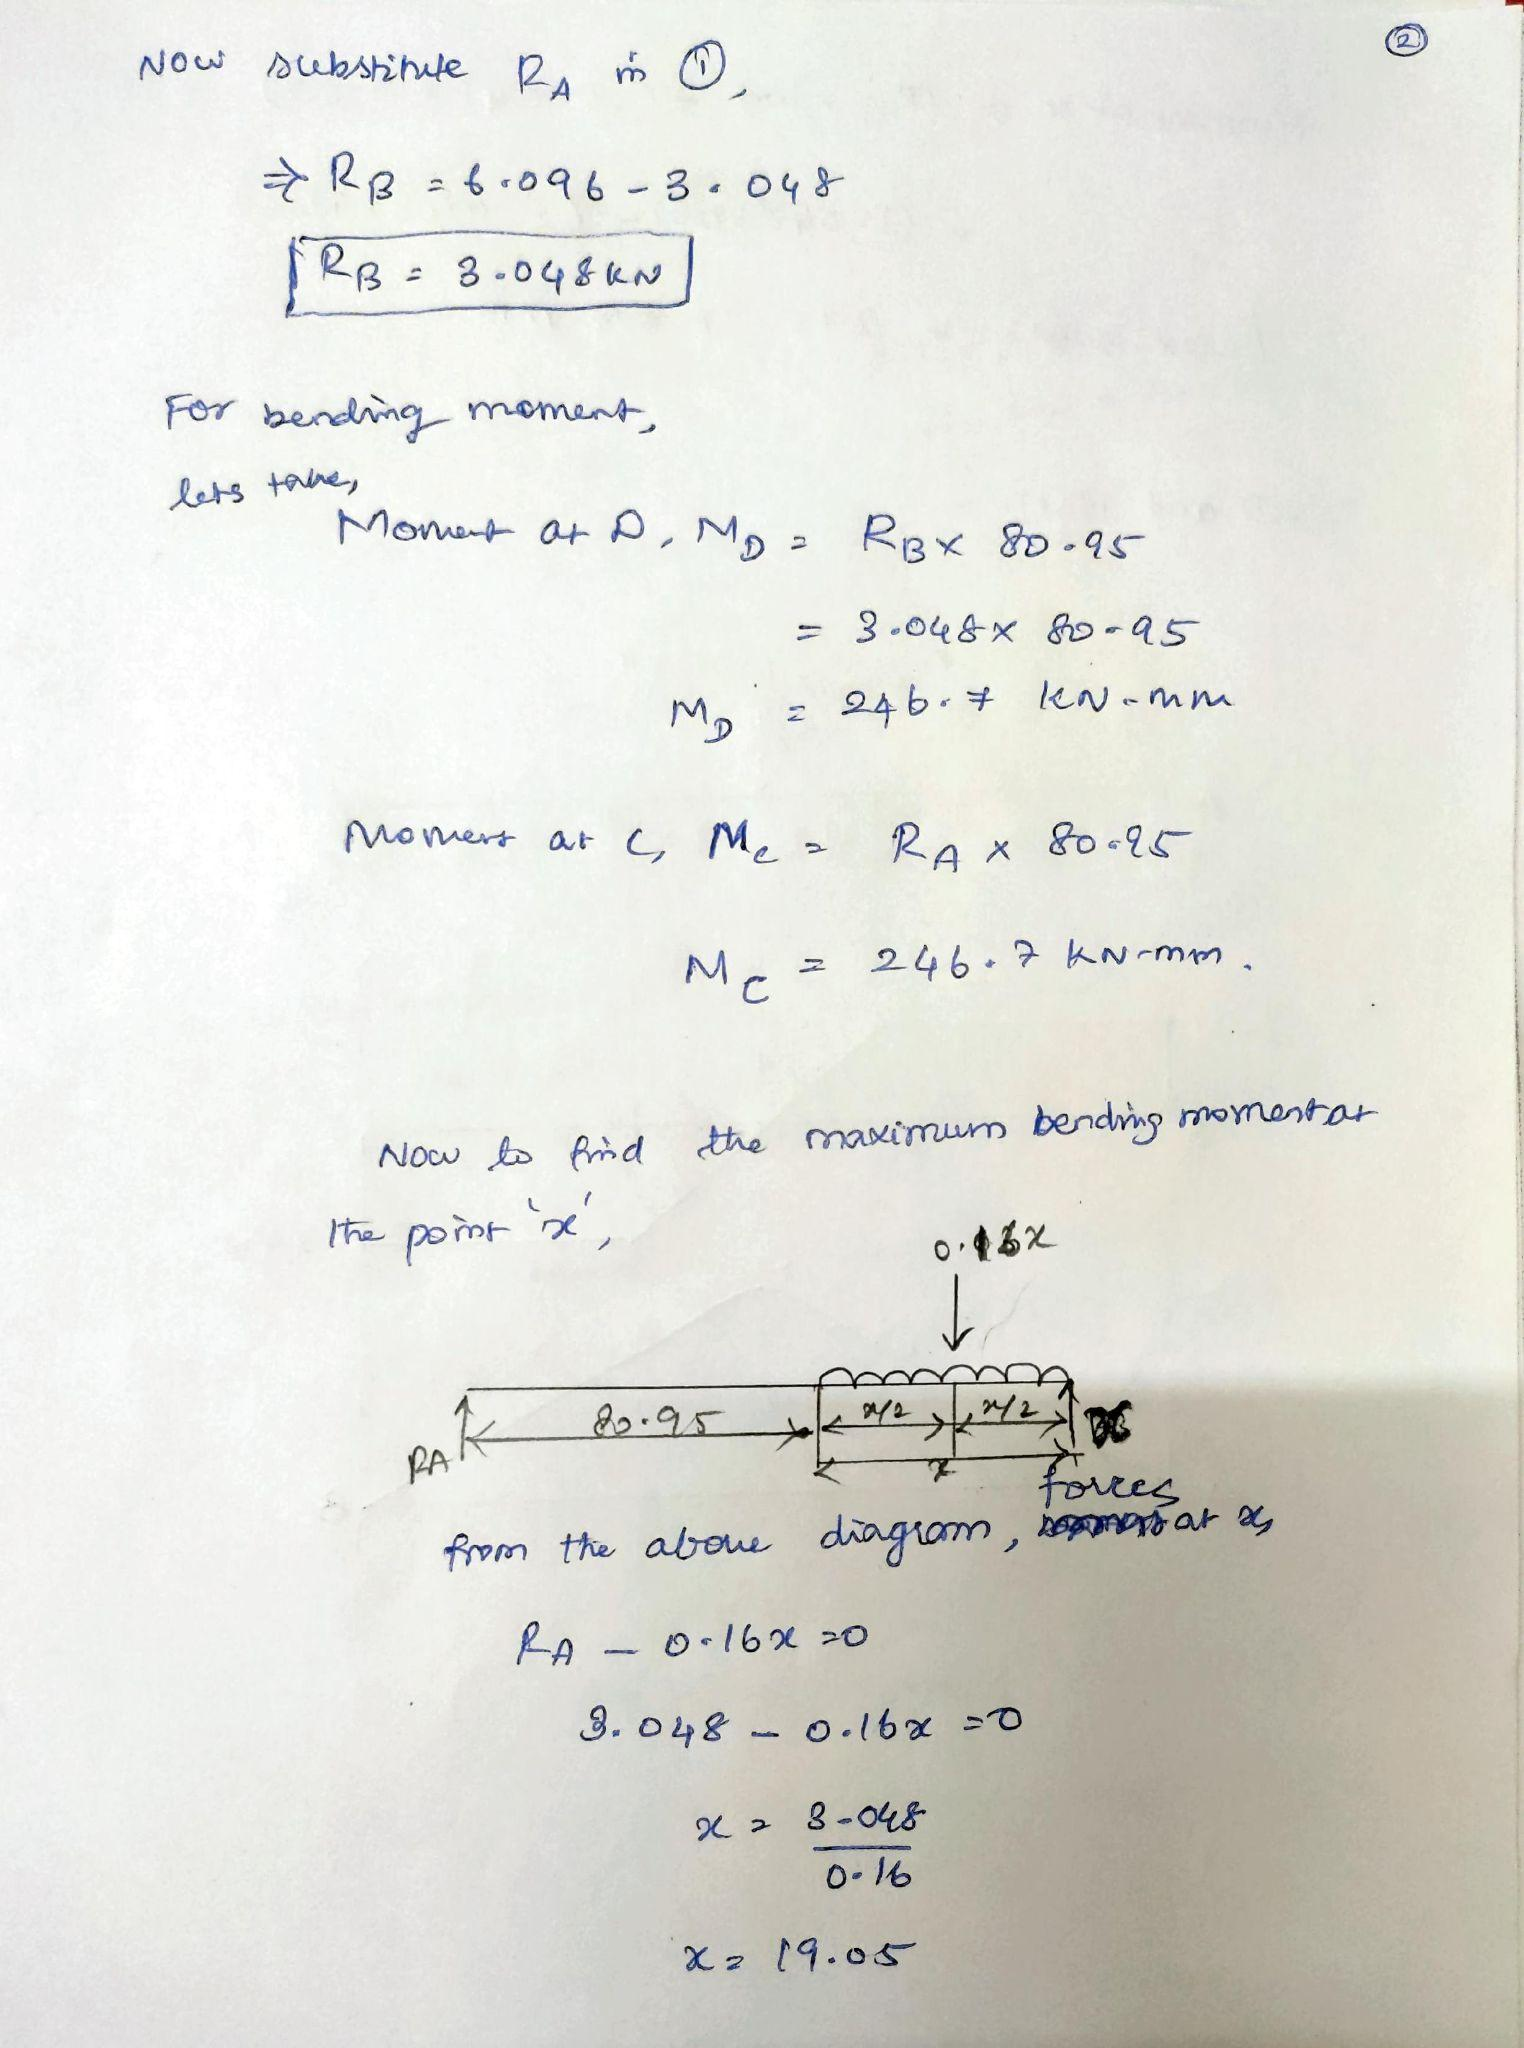 ②
Now substitute RA in ①,
⇒ RB = 6.096 - 3.048
RB = 3.048KN
For bending moment,
lets take,
Moment at D, MD = RB x 80.95
= 3.048 x 80.95
MD = 246.7 KN-mm
Moment at C, Mc = RA x 80.95
Mc = 246.7 KN-mm.
Now to find the maximum bending moment at
the point 'x',
0.16x
80.95 x/2 x/2
RA x
forces
from the above diagram, at x,
RA - 0.16x =0
3.048 - 0.16x =0
x = 3.048
0.16
x = 19.05